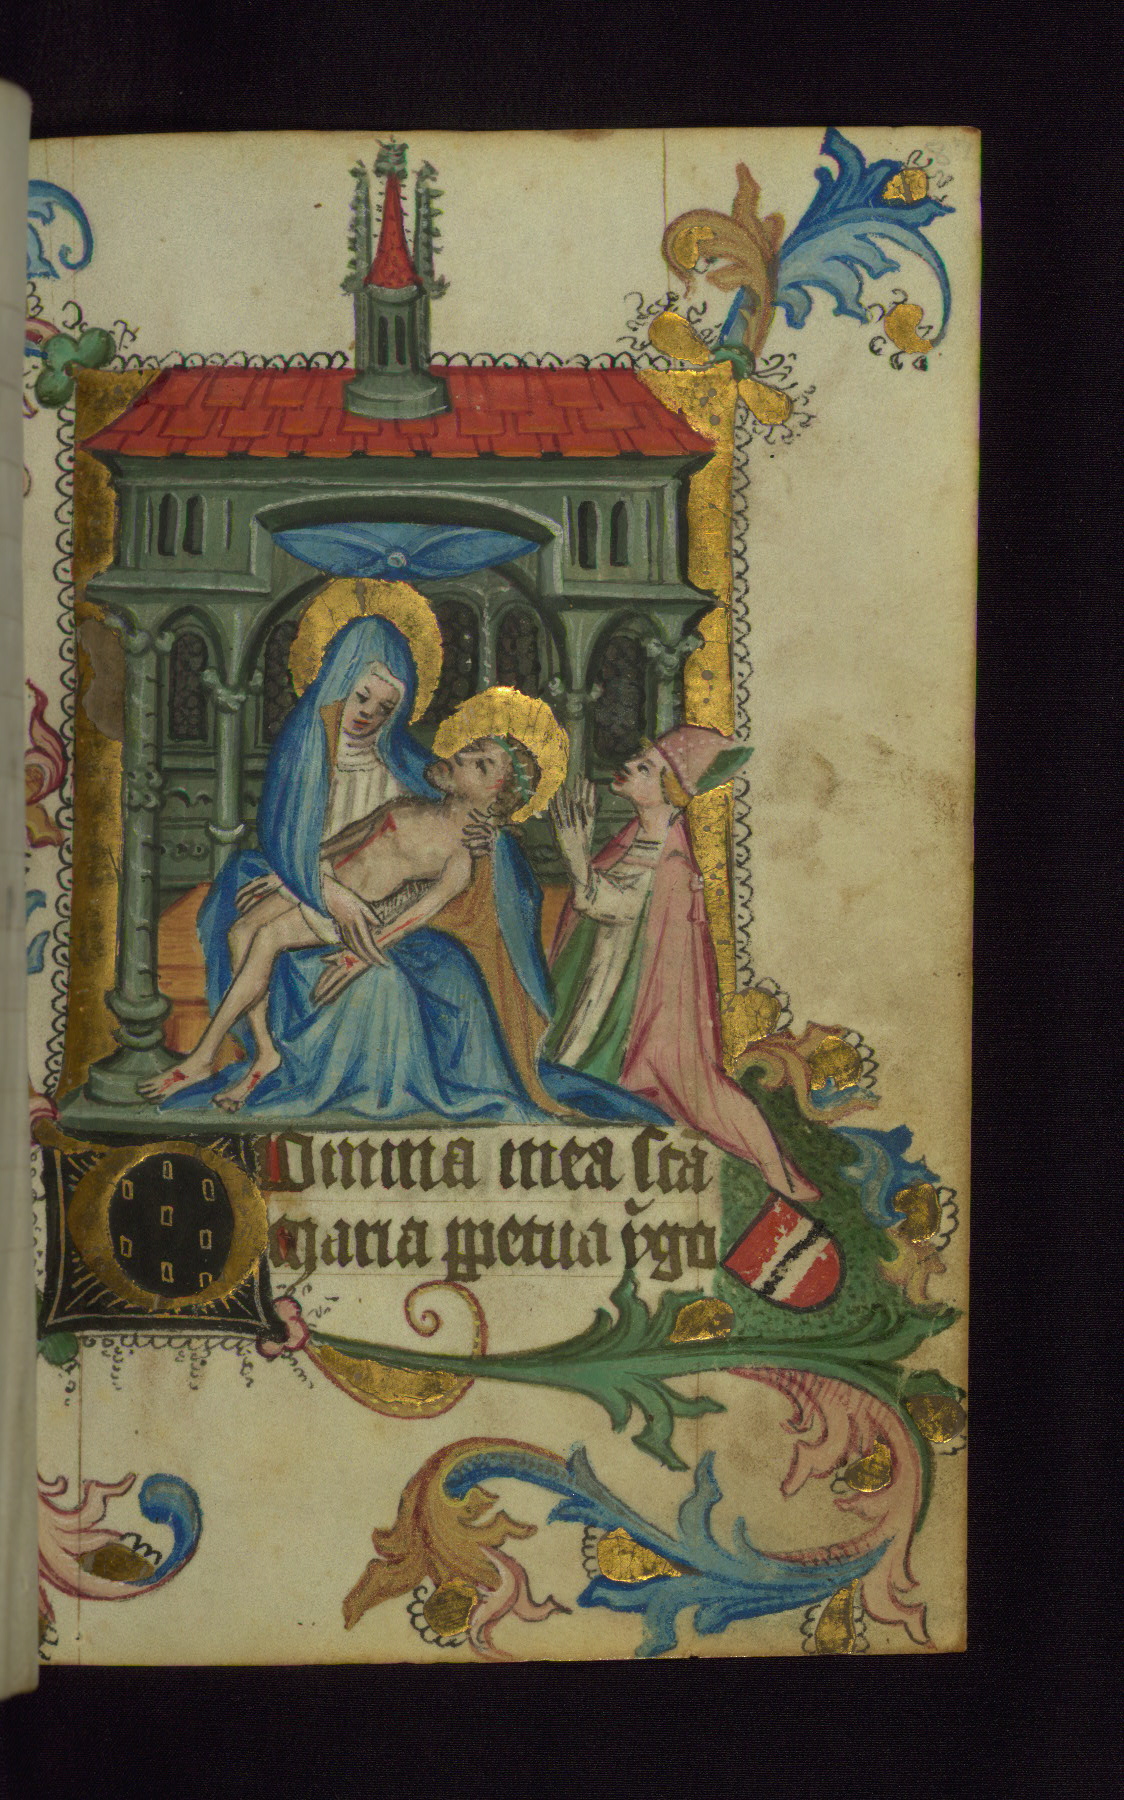 O Domina mea sctā
Maria ppetua v̄go